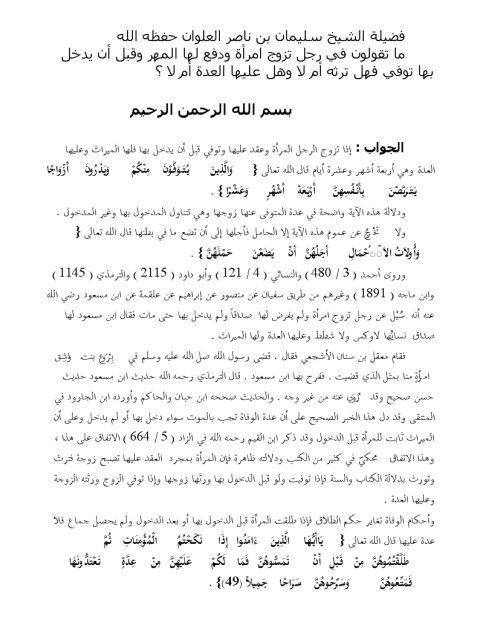 فضيلة الشيخ سليمان بن ناصر العلوان حفظه الله
ما تقولون في رجل تزوج امرأة ودفع لها المهر وقبل أن يدخل
بها توفي فهل ترثه أم لا وهل عليها العدة أم لا ؟
بسم الله الرحمن الرحيم
الجواب : إذا تزوج الرجل المرأة وعقد عليها وتوفي قبل أن يدخل بها فلها الميراث وعليها
العدة وهي أربعة أشهر وعشرة أيام قال الله تعالى { وَالَّذِينَ يُتَوَفَّوْنَ مِنْكُمْ وَيَذَرُونَ أَزْوَاجًا
يَتَرَبَّصْنَ بِأَنْفُسِهِنَّ أَرْبَعَةَ أَشْهُرٍ وَعَشْرًا } .
ودلالة هذه الآية واضحة في عدة المتوفى عنها زوجها وهي تتناول المدخول بها وغير المدخول .
ولا عن عموم هذه الآية إلا الحامل فأجلها إلى أن تضع ما في بطنها قال الله تعالى {
وَأُولَاتُ الْأَحْمَالِ أَجَلُهُنَّ أَنْ يَضَعْنَ حَمْلَهُنَّ } .
وروى أحمد ( 3 / 480 ) والنسائي ( 4 / 121 ) وأبو داود ( 2115 ) والترمذي ( 1145 )
وابن ماجه ( 1891 ) وغيرهم من طريق سفيان عن منصور عن إبراهيم عن علقمة عن ابن مسعود رضي الله
عنه أنه سُئِل عن رجل تزوج امرأة ولم يفرض لها صداقاً ولم يدخل بها حتى مات فقال ابن مسعود لها
صداق نسائها لاوكس ولا شطط وعليها العدة ولها الميراث .
فقام معقل بن سنان الأشجعي فقال . قضى رسول الله صل الله عليه وسلم في بِرْوَعَ بنت وشِق
امرأةٍ منا بمثل الذي قضيت . ففرح بها ابن مسعود . قال الترمذي رحمه الله حديث ابن مسعود حديث
حسن صحيح وقد رُوي عنه من غير وجه . والحديث صححه ابن حبان والحاكم وأورده ابن الجارود في
المنتقى وقد دل هذا الخبر الصحيح على أن عدة الوفاة تجب بالموت سواء دخل بها أو لم يدخل وعلى أن
الميراث ثابت للمرأة قبل الدخول وقد ذكر ابن القيم رحمه الله في الزاد ( 5 / 664 ) الاتفاق على هذا ،
وهذا الاتفاق محكيّ في كثير من الكتب ودلالته ظاهرة فإن المرأة بمجرد العقد عليها تصبح زوجة فترث
وتورث بدلالة الكتاب والسنة فإذا توفيت ولو قبل الدخول بها ورثها زوجها وإذا توفي الزوج ورثته الزوجة
وعليها العدة .
وأحكام الوفاة تغاير حكم الطلاق فإذا طلقت المرأة قبل الدخول بها أو بعد الدخول ولم يحصل جماع فلا
عدة عليها قال الله تعالى { يَاأَيُّهَا الَّذِينَ ءَامَنُوا إِذَا نَكَحْتُمُ الْمُؤْمِنَاتِ ثُمَّ
طَلَّقْتُمُوهُنَّ مِنْ قَبْلِ أَنْ تَمَسُّوهُنَّ فَمَا لَكُمْ عَلَيْهِنَّ مِنْ عِدَّةٍ تَعْتَدُّونَهَا
فَمَتِّعُوهُنَّ وَسَرِّحُوهُنَّ سَرَاحًا جَمِيلًا (49)} .